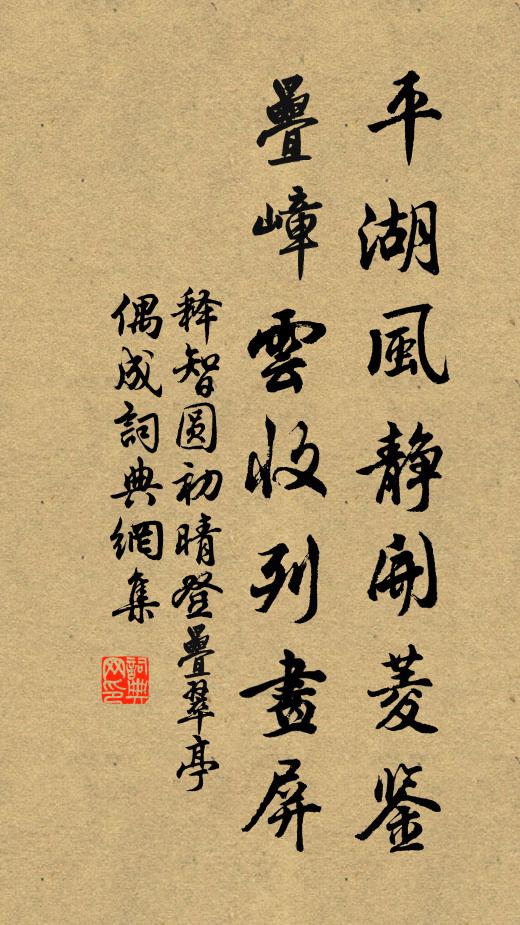 平湖風静開菱鉴
疊嶂雲收列畫屏
释智圆初晴登疊翠亭
偶成詞典網集
詞典网印